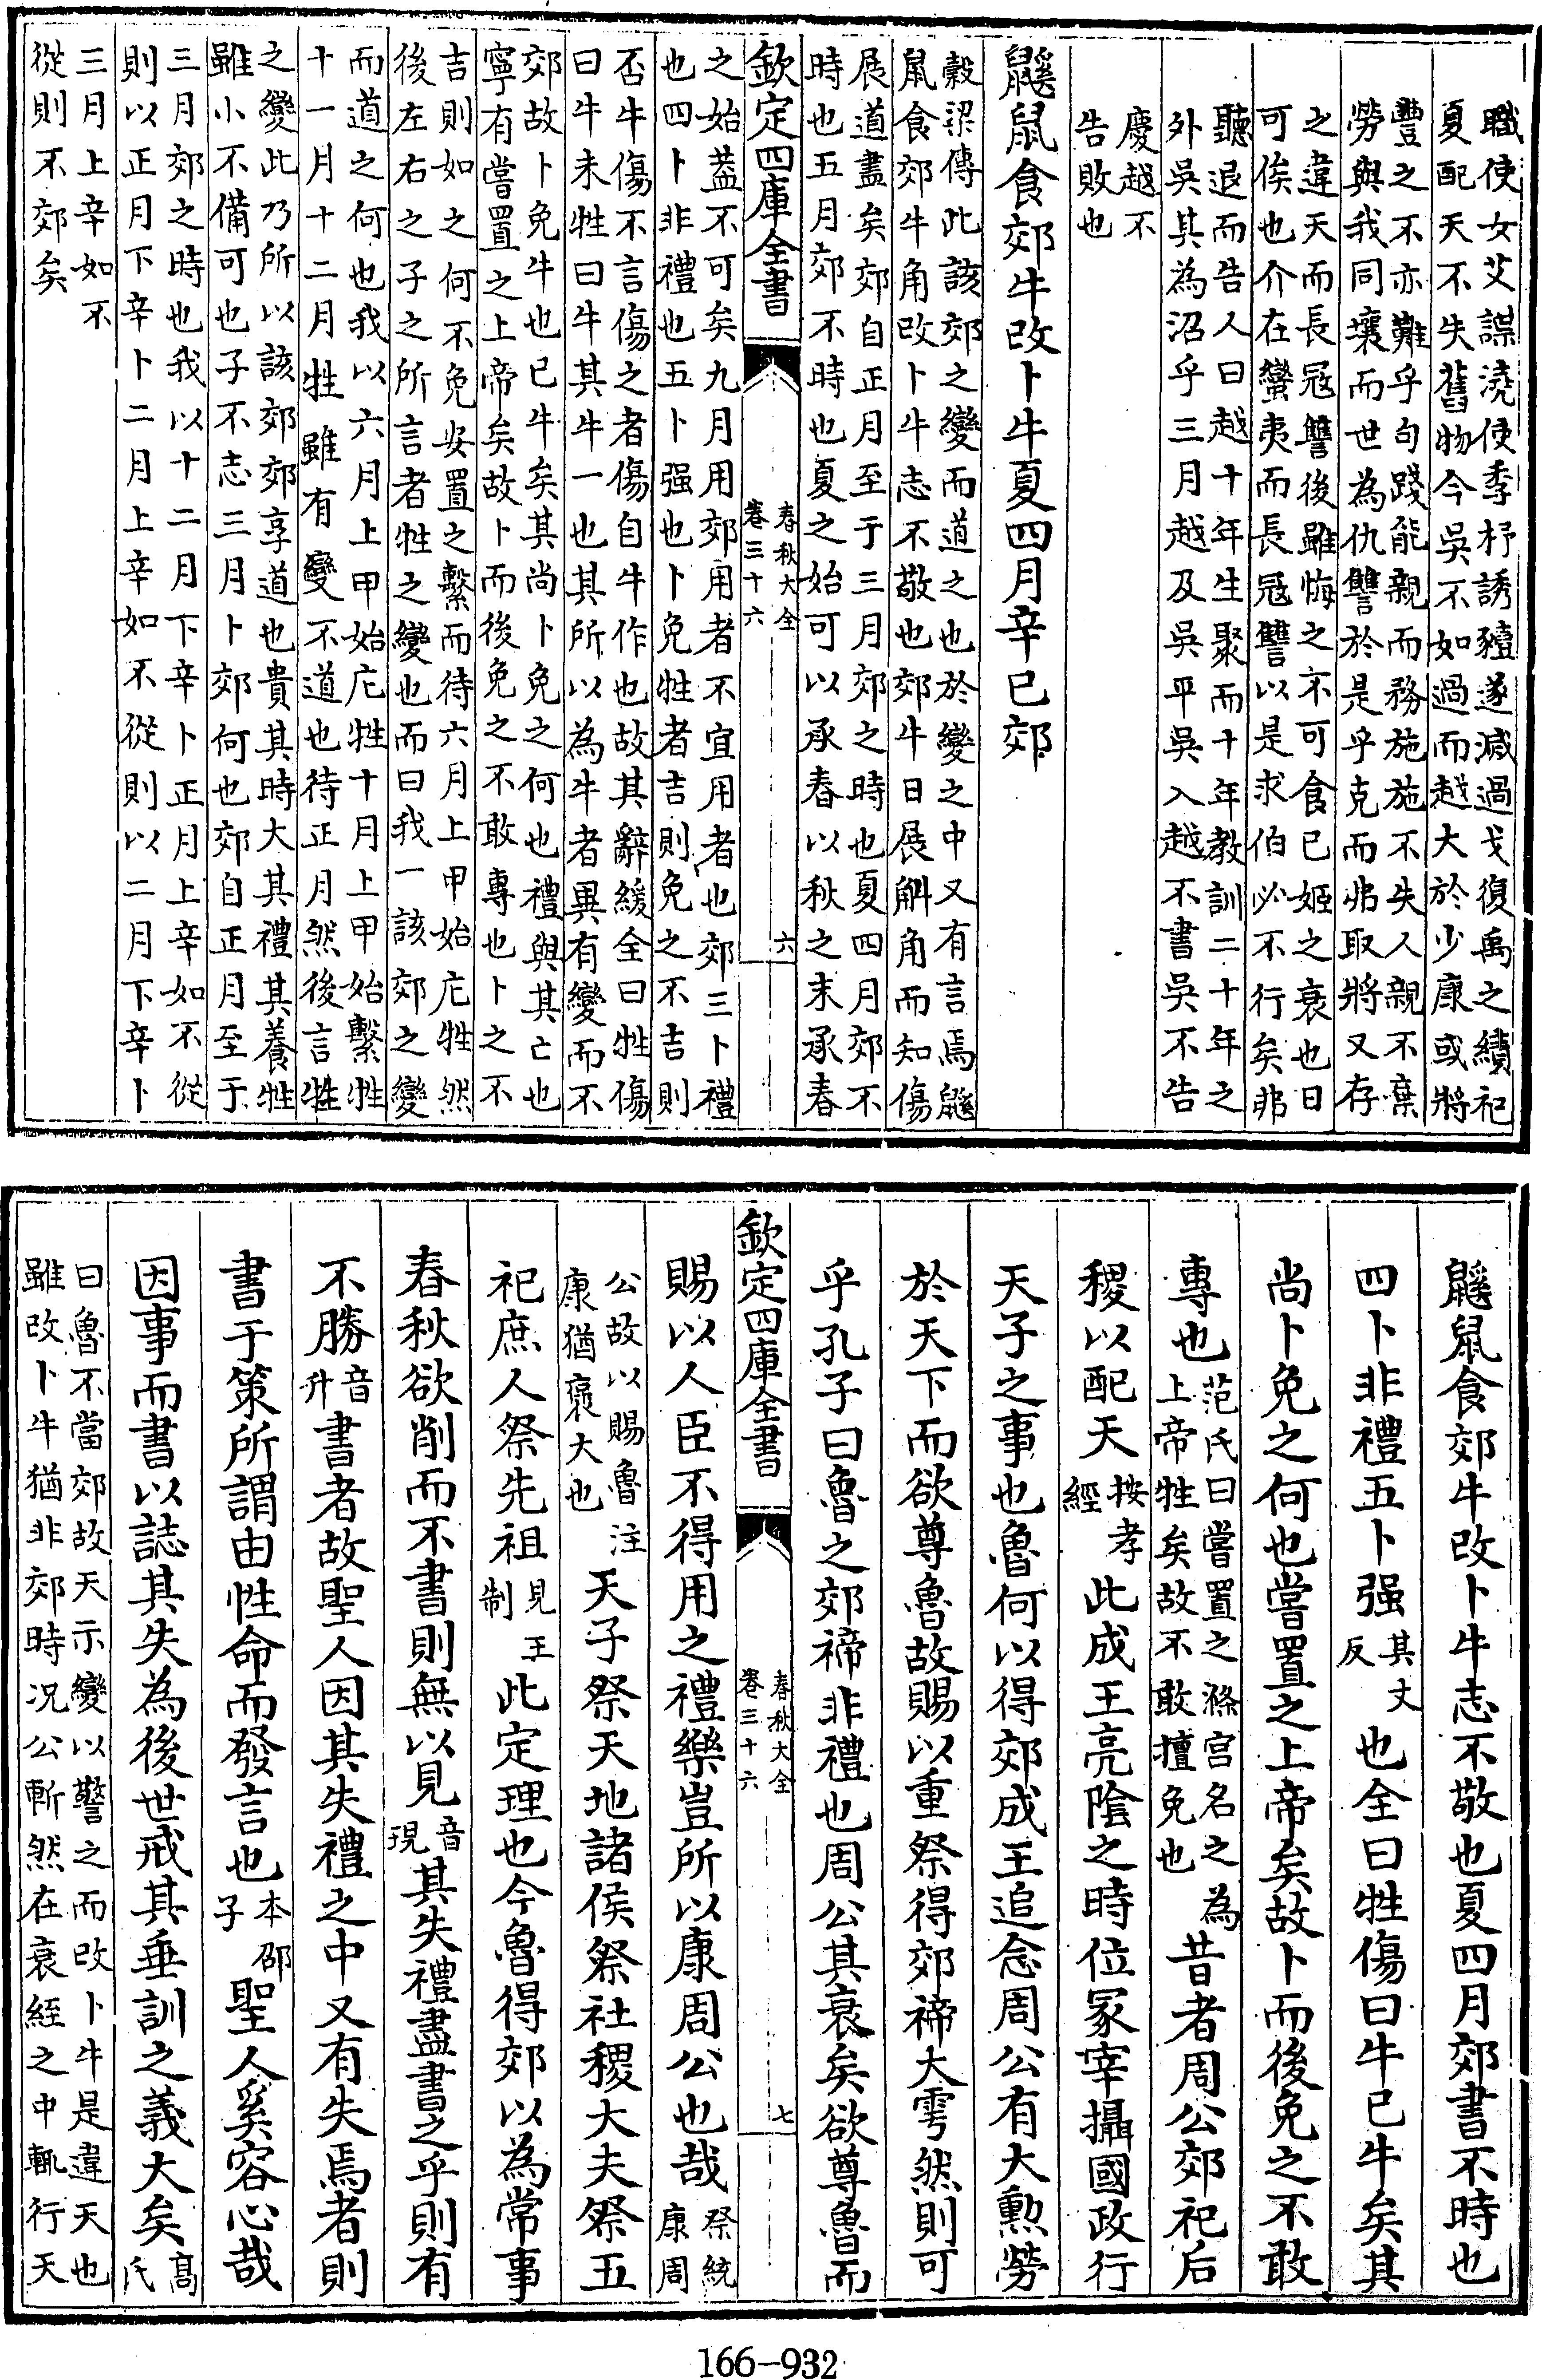 職使女艾諜澆使季杼誘豷遂滅過戈復禹之績祀
夏配天不失舊物今吳不如過而越大於少康或將
豐之不亦難乎句踐能親而務施施不失人親不棄
勞與我同壤而世為仇讐於是乎克而弗取將又存
之違天而長寇讐後雖悔之不可食已姬之衰也日
可俟也介在蠻夷而長寇讐以是求伯必不行矣弗
聽退而告人曰越十年生聚而十年教訓二十年之
外吳其為沼乎三月越及吳平吳入越不書吳不告
慶越不
告敗也
鼷鼠食郊牛改卜牛夏四月辛巳郊
穀梁傳此該郊之變而道之也於變之中又有言焉鼷
鼠食郊牛角改卜牛志不敬也郊牛日展斛角而知傷
展道盡矣郊自正月至于三月郊之時也夏四月郊不
時也五月郊不時也夏之始可以承春以秋之末承春
欽定四庫全書
春秋大全
卷三十六
六
之始蓋不可矣九月用郊用者不宜用者也郊三卜禮
也四卜非禮也五卜强也卜免牲者吉則免之不吉則
否牛傷不言傷之者傷自牛作也故其辭緩全曰牲傷
曰牛未牲曰牛其牛一也其所以為牛者異有變而不
郊故卜免牛也已牛矣其尚卜免之何也禮與其亡也
寧有嘗置之上帝矣故卜而後免之不敢專也卜之不
吉則如之何不免安置之繫而待六月上甲始庀牲然
後左右之子之所言者牲之變也而曰我一該郊之變
而道之何也我以六月上甲始庀牲十月上甲始繫牲
十一月十二月牲雖有變不道也待正月然後言牲
之變此乃所以該郊郊享道也貴其時大其禮其養牲
雖小不備可也子不志三月卜郊何也郊自正月至于
三月郊之時也我以十二月下辛卜正月上辛如不從
則以正月下辛卜二月上辛如不從則以二月下辛卜
三月上辛如不
從則不郊矣
鼷鼠食郊牛改卜牛志不敬也夏四月郊書不時也
四卜非禮五卜强其丈反也全曰牲傷曰牛已牛矣其
尚卜免之何也嘗置之上帝矣故卜而後免之不敢
專也范氏曰嘗置之滌宮名之為上帝牲矣故不敢擅免也昔者周公郊祀后
稷以配天按孝經此成王亮陰之時位冢宰攝國政行
天子之事也魯何以得郊成王追念周公有大勲勞
於天下而欲尊魯故賜以重祭得郊禘大雩然則可
乎孔子曰魯之郊禘非禮也周公其衰矣欲尊魯而
欽定四庫全書
春秋大全
卷三十六
七
賜以人臣不得用之禮樂豈所以康周公也哉祭統康周
公故以賜魯注康猶褒大也天子祭天地諸侯祭社稷大夫祭五
祀庶人祭先祖見王制此定理也今魯得郊以為常事
春秋欲削而不書則無以見音現其失禮盡書之乎則有
不勝音升書者故聖人因其失禮之中又有失焉者則
書于策所謂由性命而發言也本邵子聖人奚容心哉
因事而書以誌其失為後世戒其垂訓之義大矣高氏
曰魯不當郊故天示變以警之而改卜牛是違天也
雖改卜牛猶非郊時况公斬然在衰絰之中輒行天
166-932